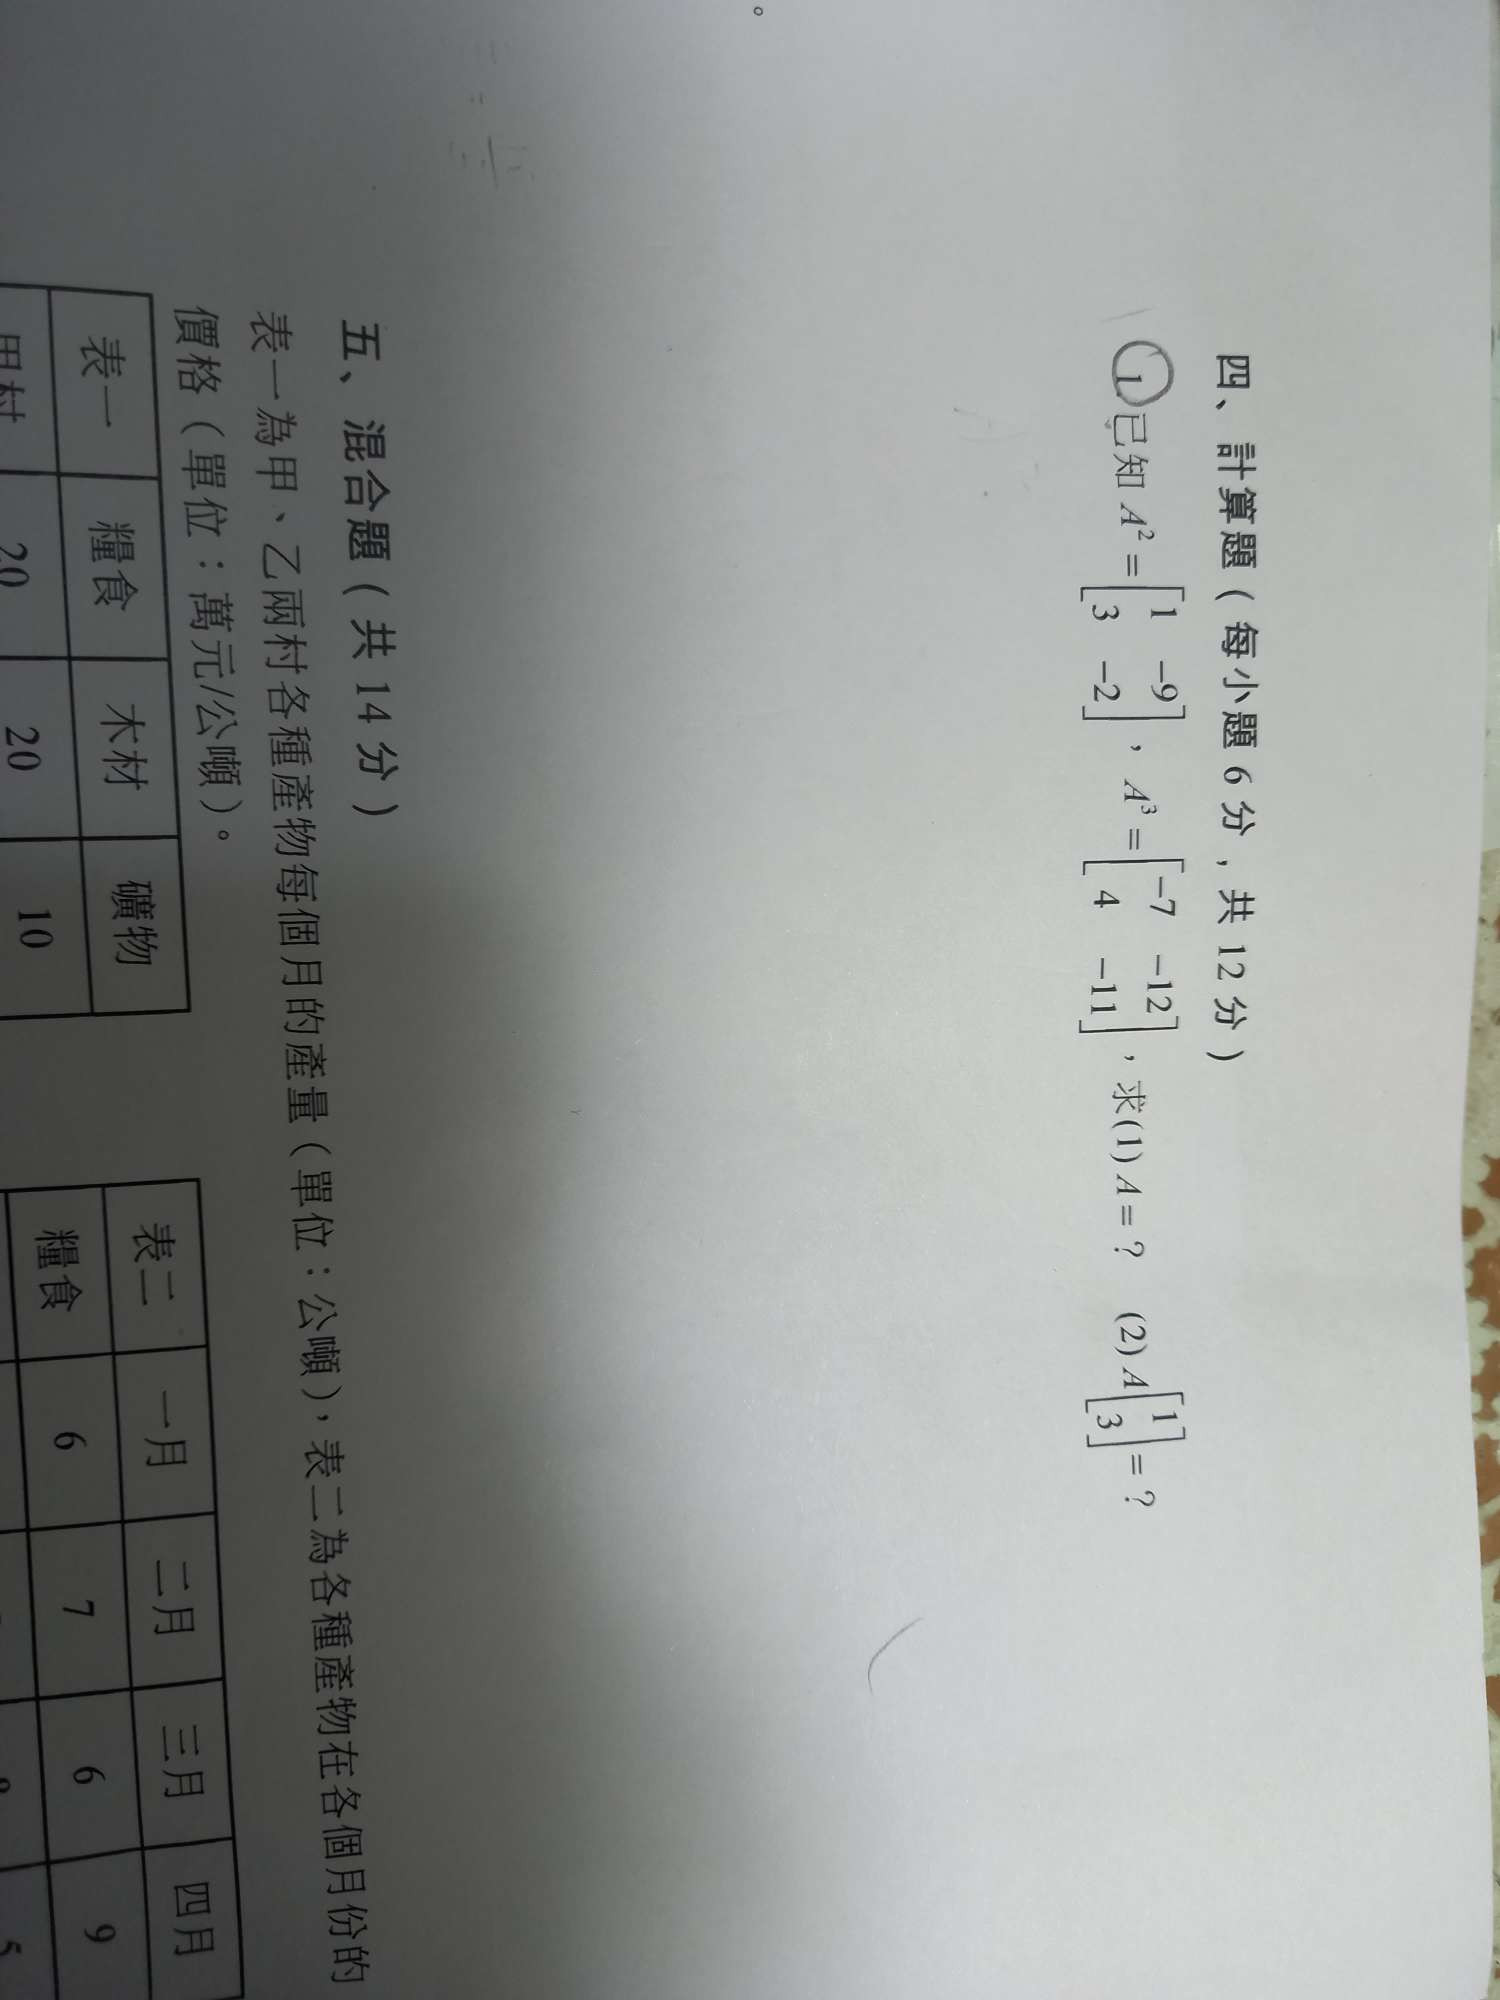 四、計算題(每小題 6 分,共 12 分)
1.已知 A² = [1 -9; 3 -2],A³ = [-7 -12; 4 -11],求(1) A = ? (2) A[1; 3] = ?
五、混合題(共 14 分)
表一為甲、乙兩村各種產物每個月的產量(單位:公噸),表二為各種產物在各個月份的
價格(單位:萬元/公噸)。
表一 糧食 木材 礦物
甲村 20 20 10
表二 一月 二月 三月 四月
糧食 6 7 6 9